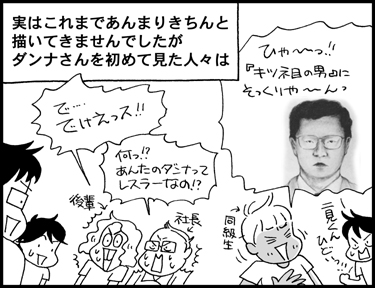 実はこれまであんまりきちんと
描いてきませんでしたが
ダンナさんを初めて見た人々は
で‥‥
でけえっス!!
何っ!?
あんたのダンナって
レスラーなの!?
後輩
社長
ひゃ〜〜っ!!
『キツネ目の男』に
そっくりや〜〜んっ
同級生
二見くん
ひど‥‥!!